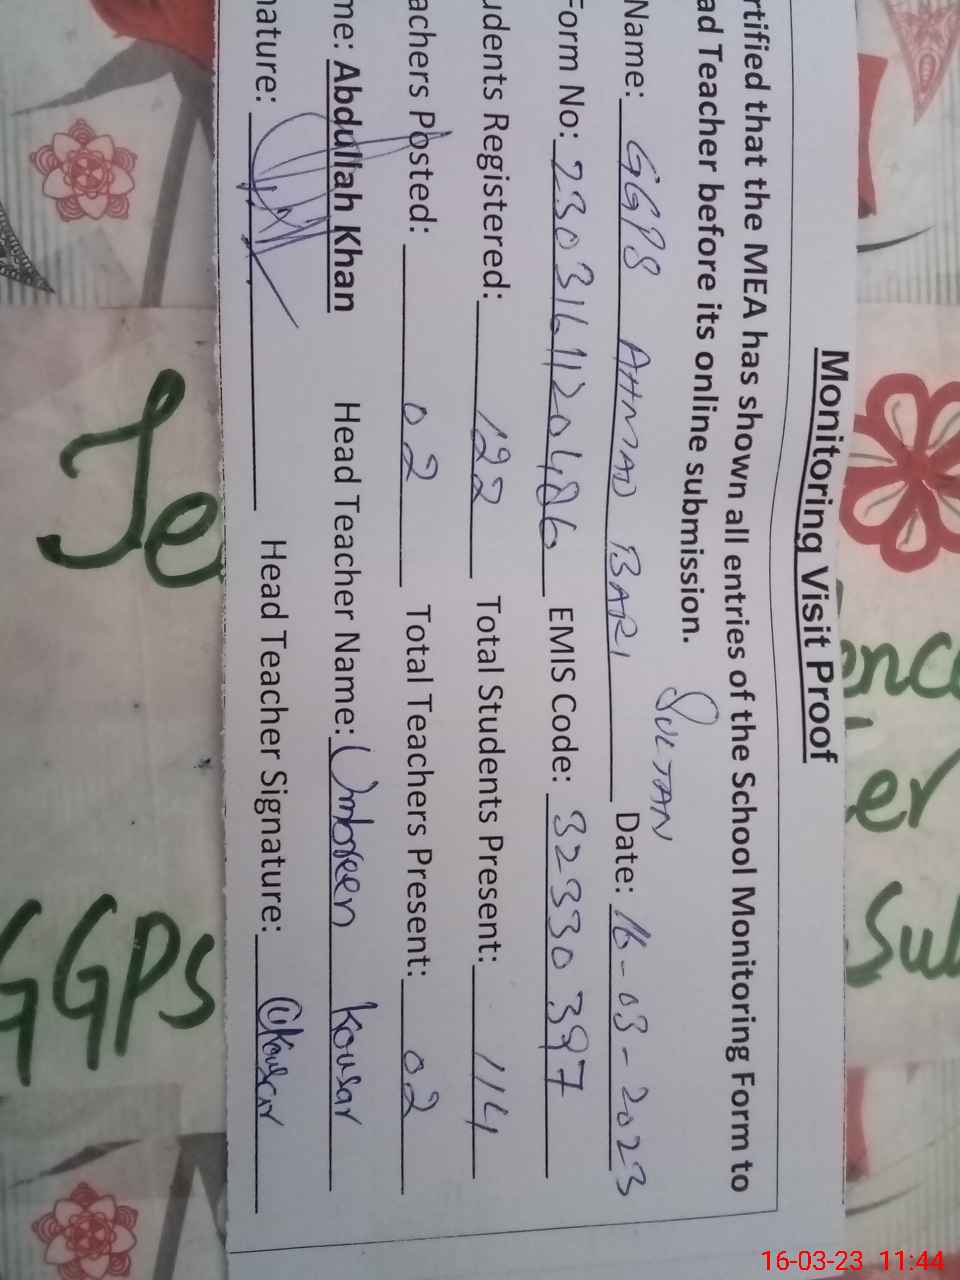 Monitoring Visit Proof
rtified that the MEA has shown all entries of the School Monitoring Form to
ad Teacher before its online submission.
SULTAN
Name: GGPS AHMAD BARI Date: 16-03-2023
Form No: 2303161120486 EMIS Code: 32330397
udents Registered: 122 Total Students Present: 114
achers Posted: 02 Total Teachers Present: 02
me: Abdullah Khan Head Teacher Name: Umbreen Kousar
nature: Head Teacher Signature: Kousar
Je
GGPS
enc
er
Sul
16-03-23 11:44